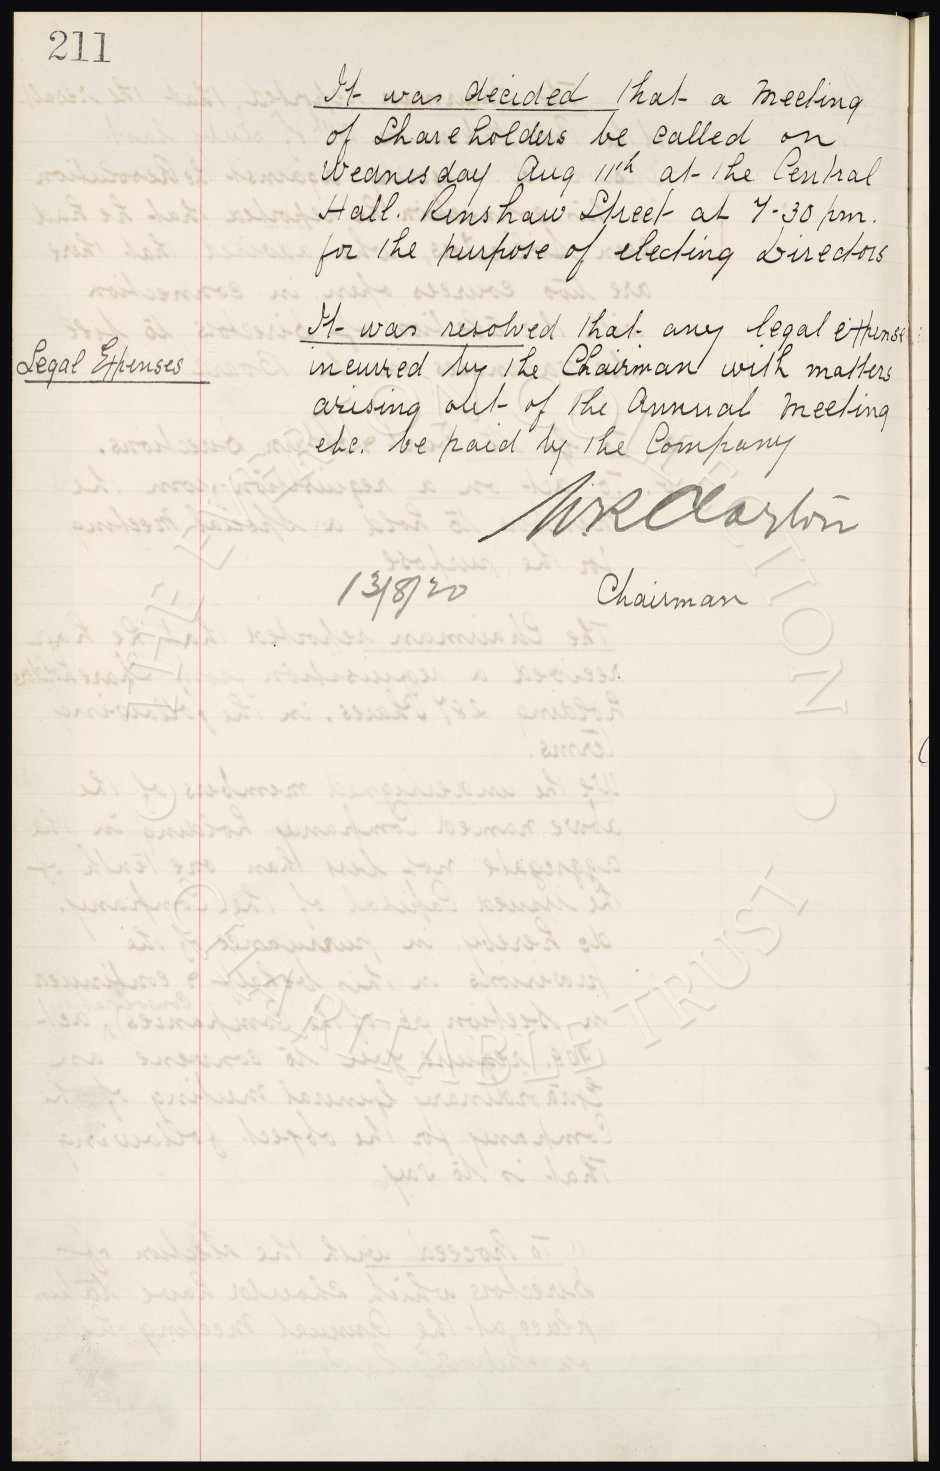 211
It was decided that a Meeting
of Shareholders be called on
Wednesday Aug 11th at the Central
Hall. Renshaw Street at 7-30 pm.
for the purpose of electing Directors
It was resolved that any legal expenses
Legal Expenses
incurred by the Chairman with matters
arising out of the Annual Meeting
etc. be paid by the Company
WR Clayton
13/8/20 Chairman
THE EVERTON COLLECTION
CHARITABLE TRUST